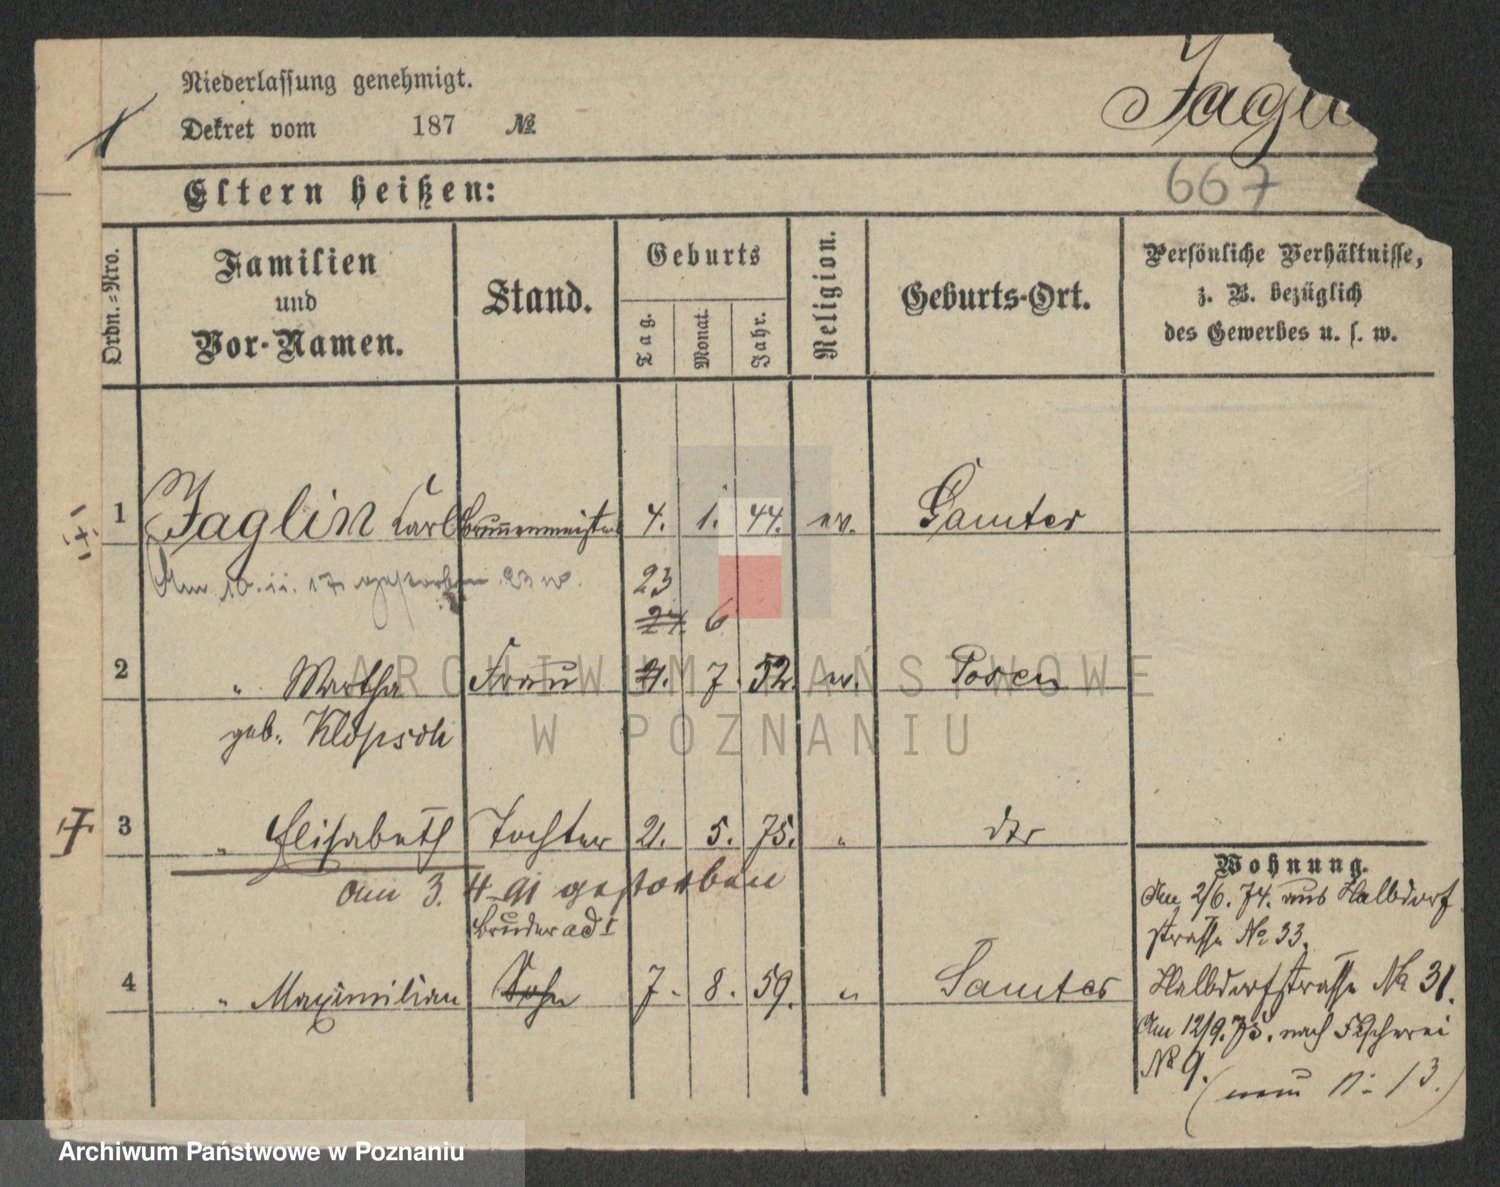 Niederlassung genehmigt.
Dekret vom 187 №
Jagli
667
Eltern heißen:
Ordn.=Nro.
Familien
und
Vor-Namen.
Stand.
Geburts
Tag.
Monat.
Jahr.
Religion.
Geburts-Ort.
Persönliche Verhältnisse,
z. B. bezüglich
des Gewerbes u. s. w.
1 Jaglin Carl Brunnenmeister 4. 1. 44. ev. Samter
Am 10. 11. 17. gestorben
23
27. 6
2 " Martha Frau 4. 7. 52. ev. Posen
geb. Klopsch
3 " Elisabeth Tochter 21. 5. 75. " dto
am 3. 4. 91 gestorben
Bruder ad 1
4 " Maximilian Sohn 7. 8. 59. " Samter
Wohnung.
Am 2/6. 74. aus Halbdorf
strasse No 33.
Halbdorfstrasse No 31.
Am 12/9. 75. nach Fischerei
No 9.
(neu N: 13.)
ARCHIWUM PAŃSTWOWE
W POZNANIU
Archiwum Państwowe w Poznaniu